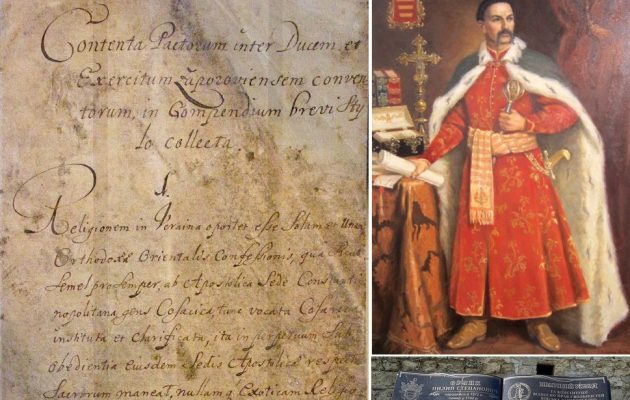 Contenta Pactorum inter Ducem et
Exercitum Zaporoviensem conven
torum, in Compendium brevi Sty
lo collecta.
1.
Religionem in Ucraina oportet esse Solam et Unam
Orthodoxæ Orientalis Confessionis, qua
Semel pro Semper, ab Apostolica Sede Constanti
nopolitana gens Cosacica, tunc vocata Cosarica
instituta et clarificata, ita in perpetuum Sub
obedientia Eiusdem Sedis Apostolicæ
Sacrorum maneat, nullamq Exoticam
ОРЛИК
ПИЛИП СТЕПАНОВИЧ